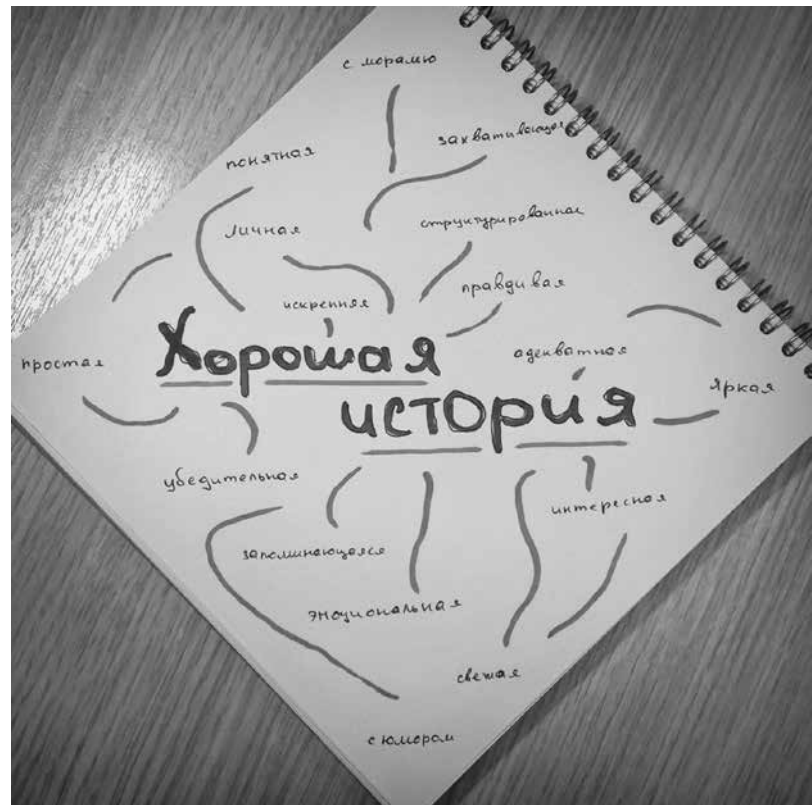 с моралью
захватывающая
понятная
структурированная
личная
правдивая
искренняя
Хорошая
адекватная
простая
яркая
история
убедительная
интересная
запоминающаяся
эмоциональная
свежая
с юмором